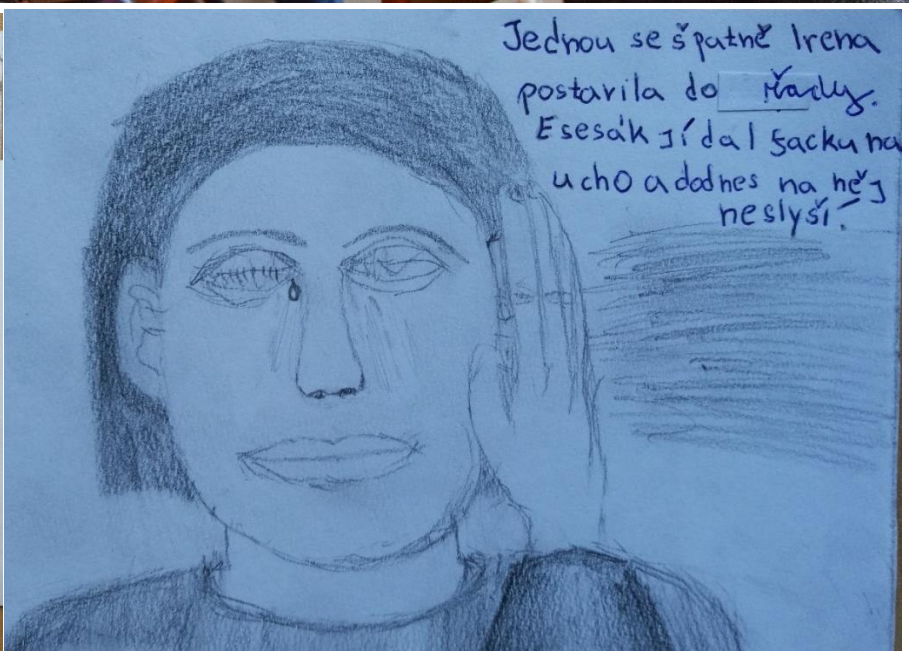 Jednou se špatně Irena
postavila do řady.
Esesák jí dal facku na
ucho a dodnes na něj
neslyší.